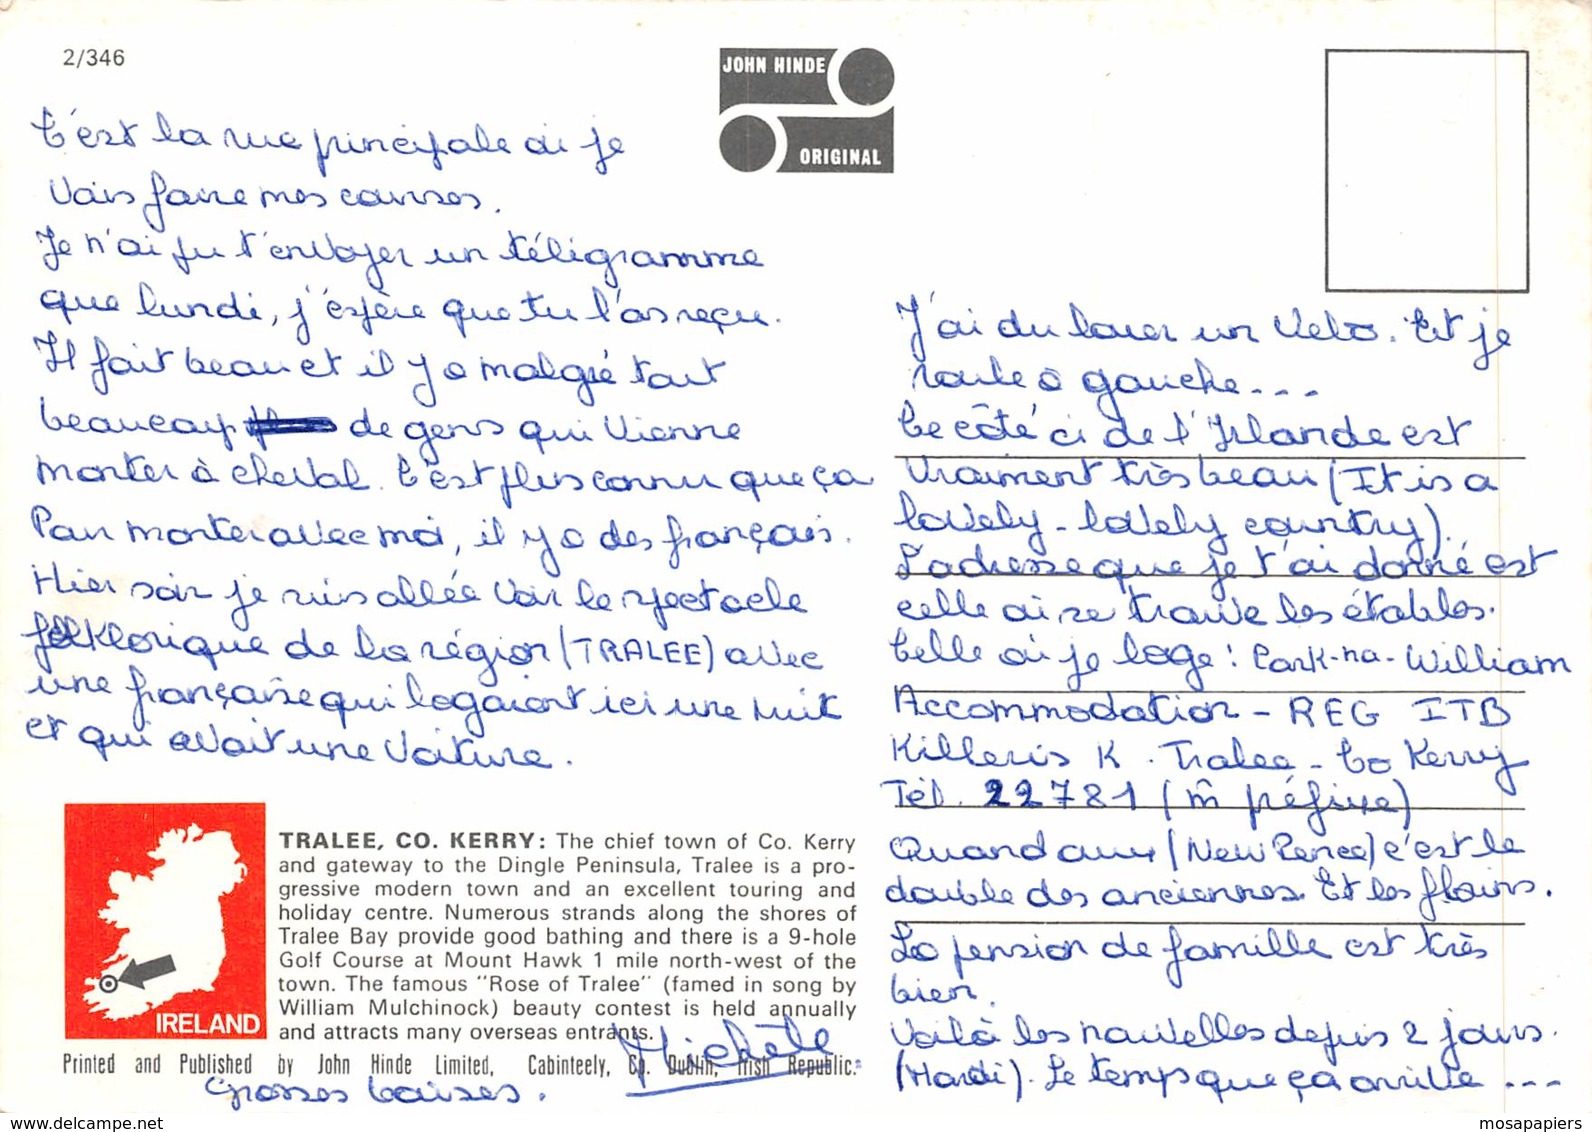 2/346
JOHN HINDE
ORIGINAL
C'est la rue principale où je
vais faire mes courses.
Je n'ai pu t'envoyer un télégramme
que lundi, j'espère que tu l'as reçu.
Il fait beau et il y a malgré tout
beaucoup de gens qui vienne
monter à cheval. C'est plus connu que ça
Pour monter avec moi, il y a des français.
Hier soir je suis allée voir le spectacle
folklorique de la région (TRALEE) avec
une française qui logeaient ici une nuit
et qui avait une voiture.
J'ai du louer un velo. Et je
roule à gauche...
Ce côté ci de l'Irlande est
vraiment très beau (It is a
lovely - lovely country).
L'adresse que je t'ai donné est
celle où se trouve les étables.
Celle où je loge : Park-na-William
Accommodation - REG ITB
Killeris K. Tralee - Co Kerry
Tél. 22781 (m̂ préfixe)
Quand aux (New Pence) c'est le
double des anciennes. Et les flains.
La pension de famille est très
bien.
Voilà les nouvelles depuis 2 jours.
(Mardi). Le temps que ça arrive ...
TRALEE, CO. KERRY: The chief town of Co. Kerry
and gateway to the Dingle Peninsula, Tralee is a pro-
gressive modern town and an excellent touring and
holiday centre. Numerous strands along the shores of
Tralee Bay provide good bathing and there is a 9-hole
Golf Course at Mount Hawk 1 mile north-west of the
town. The famous "Rose of Tralee" (famed in song by
William Mulchinock) beauty contest is held annually
and attracts many overseas entrants.
IRELAND
Printed and Published by John Hinde Limited, Cabinteely, Co. Dublin, Irish Republic.
Michèle
Grosses baises.
mosapapiers